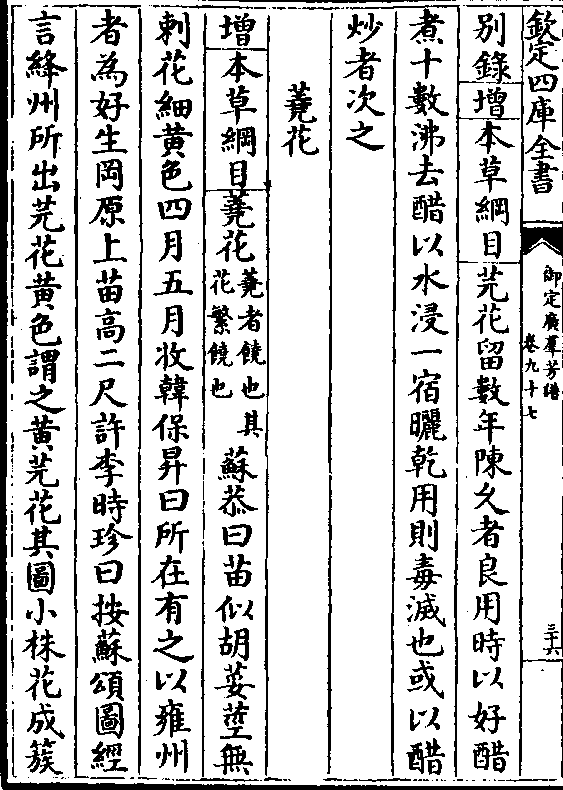 欽定四庫全書
御定廣羣芳譜
卷九十七
三十六
別錄增本草綱目芫花留數年陳久者良用時以好醋
煮十數沸去醋以水浸一宿曬乾用則毒減也或以醋
炒者次之
蕘花
增本草綱目蕘花蕘者饒也其花繁饒也蘇恭曰苗似胡荽莖無
刺花細黃色四月五月收韓保昇曰所在有之以雍州
者為好生岡原上苗高二尺許李時珍曰按蘇頌圖經
言絳州所出芫花黃色謂之黃芫花其圖小株花成簇